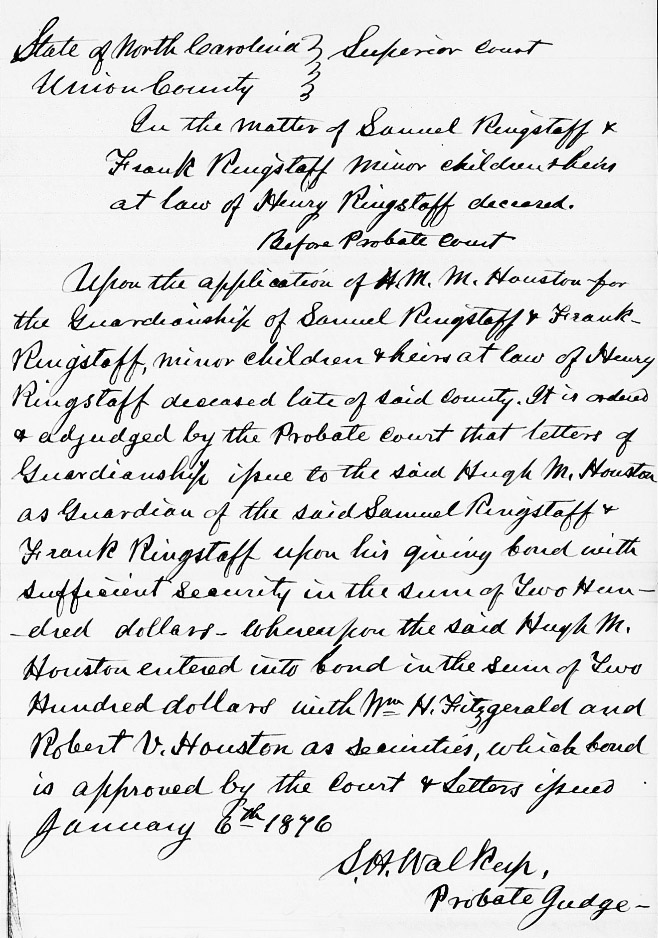 State of North Carolina } Superior court
Union County }
In the matter of Samuel Ringstaff &
Frank Ringstaff minor children & heirs
at law of Henry Ringstaff deceased.
Before Probate Court
Upon the application of H. M. M. Houston for
the Guardianship of Samuel Ringstaff & Frank
Ringstaff, minor children & heirs at law of Henry
Ringstaff deceased late of said County. It is ordered
& adjudged by the Probate court that letters of
Guardianship issue to the said Hugh M. Houston
as Guardian of the said Samuel Ringstaff &
Frank Ringstaff upon his giving bond with
sufficient security in the sum of Two Hun-
-dred dollars - Whereupon the said Hugh M.
Houston entered into bond in the sum of Two
Hundred dollars with Wm H. Fitzgerald and
Robert V. Houston as securities, which bond
is approved by the Court & Letters issued
January 6th 1876
S. H. Walkup,
Probate Judge -